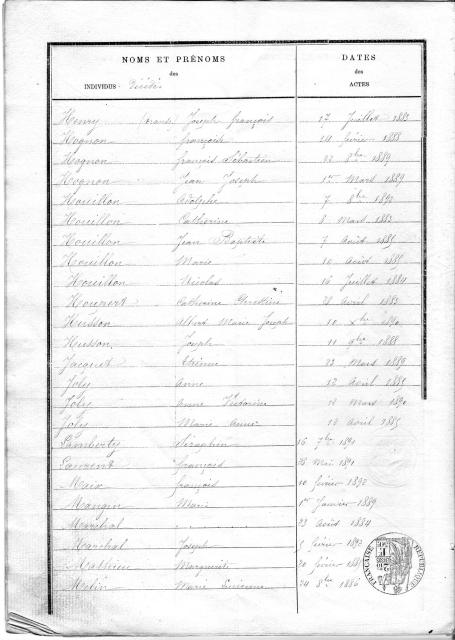 NOMS ET PRÉNOMS
des
INDIVIDUS Décédés
DATES
des
ACTES
Henry Joseph françois 17 Juillet 1883
Hognon françoise 14 février 1888
Hognon françois Sébastien 22 1889
Hognon Jean Joseph 1er Mars 1889
Houillon Adolphe 7 8bre
Houillon Catherine 8 Mars 1883
Houillon Jean Baptiste 7 Août 1885
Houillon Marie 10 Août 1885
Houillon Nicolas 16 Juillet 1884
Houpert Catherine Christine 28 Avril 1883
Husson Albert Marie Joseph 10 Xbre 1890
Husson Joseph 11 9bre 1888
Jacquot Etienne 23 Mars 1889
Joly Anne 12 Avril 1885
Joly Anne Victorine Mars 1890
Joly Marie Anne Avril 1885
Lamberty Séraphin 16 7bre 1891
Laurent françois 26 Mai 1891
Maix françois 10 février 1892
Mangin Marie 1er Janvier 1889
Maréchal " " 23 Août 1884
Maréchal Joseph 5 février 1892
Mathieu Marguerite 20 février 1881
Marie 24 8bre 1886
RÉPUBLIQUE FRANÇAISE